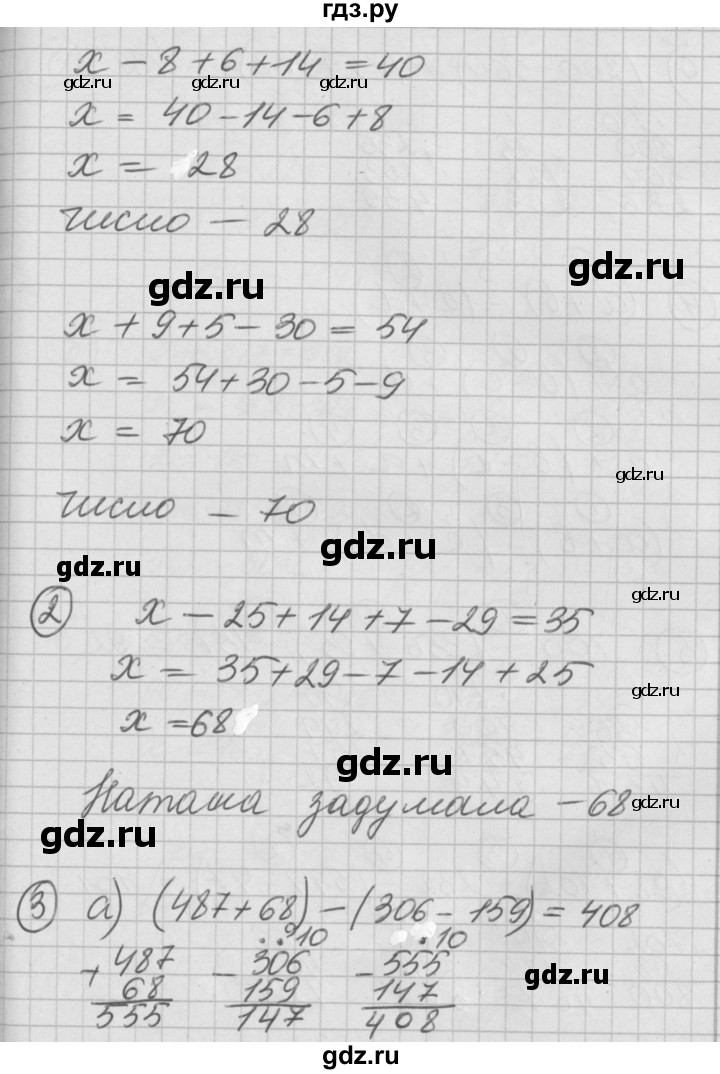 гдз.ру
x - 8 + 6 + 14 = 40
gdz.ru gdz.ru gdz.ru
x = 40 - 14 - 6 + 8
x = 28
число - 28
gdz.ru
gdz.ru
x + 9 + 5 - 30 = 54
x = 54 + 30 - 5 - 9
x = 70
gdz.ru
число - 70
gdz.ru
gdz.ru
gdz.ru
2 x - 25 + 14 + 7 - 29 = 35
x = 35 + 29 - 7 - 14 + 25
gdz.ru
x = 68
gdz.ru
Наташа задумала - 68
gdz.ru
gdz.ru
3 а) (487 + 68) - (306 - 159) = 408
. . 9 10 . 10
+ 487 - 306 - 555
68 159 147
555 147 408
gdz.ru
gdz.ru